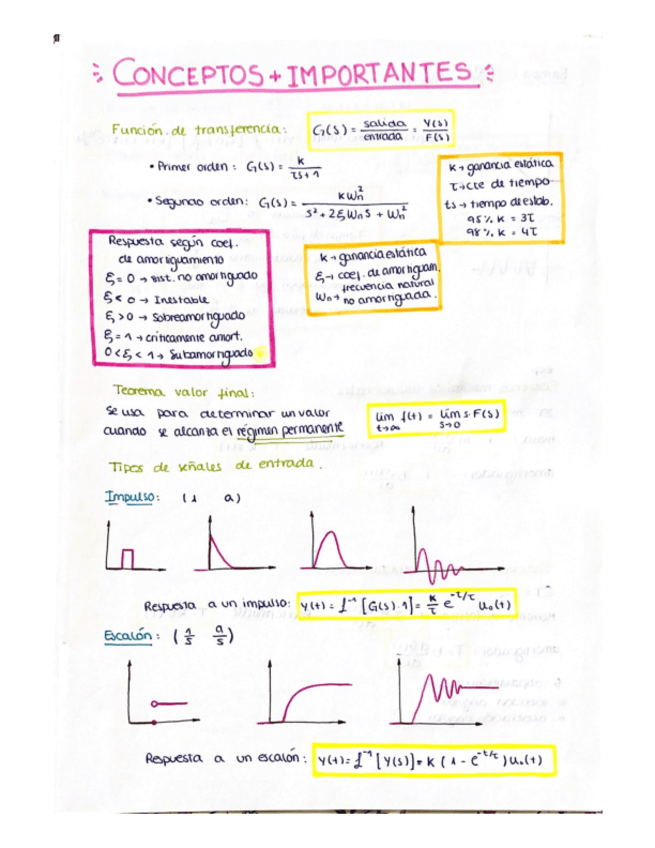 CONCEPTOS + IMPORTANTES
Función de transferencia: G(s) = salida/entrada = Y(s)/F(s)
• Primer orden: G(s) = k/(τs+1)
• Segundo orden: G(s) = kωn²/(s²+2ξωns+ωn²)
k → ganancia estática
τ → cte de tiempo
ts → tiempo de estab.
95% k = 3τ
98% k = 4τ
Respuesta según coef.
de amortiguamiento
ξ = 0 → sist. no amortiguado
ξ < 0 → Inestable
ξ > 0 → Sobreamortiguado
ξ = 1 → críticamente amort.
0 < ξ < 1 → Subamortiguado
k → ganancia estática
ξ → coef. de amortiguam.
ωn → frecuencia natural
no amortiguada.
Teorema valor final:
Se usa para determinar un valor
cuando se alcanza el régimen permanente
lim t→∞ f(t) = lim s→0 s·F(s)
Tipos de señales de entrada.
Impulso: (1 a)
Respuesta a un impulso: Y(t) = ℒ⁻¹[G(s)·1] = k/τ e^(-t/τ) u₀(t)
Escalón: (1/s a/s)
Respuesta a un escalón: Y(t) = ℒ⁻¹[Y(s)] = k (1 - e^(-t/τ)) u₀(t)